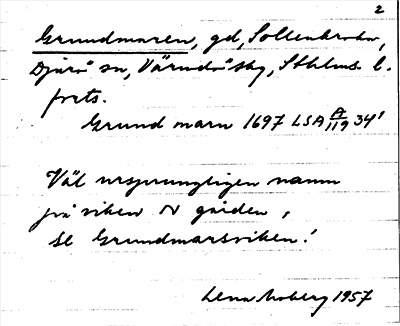 2
Grundmaren, gd, Sollenkroka,
Djurö sn, Värmdö skg, Sthlms l.
forts.
Grund marn 1697 LSA A/119 34¹
Väl ursprungligen namn
på viken N gården,
se Grundmarsviken!
Lena Moberg 1957